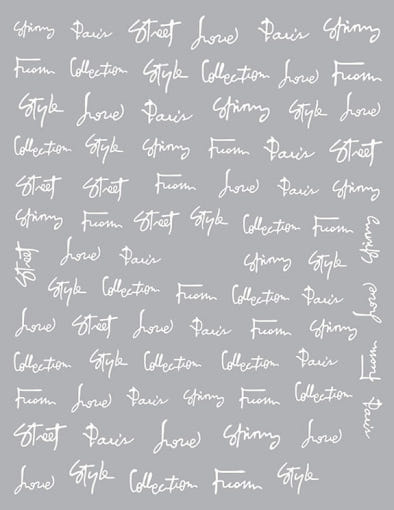 Spring Paris Street Love Paris Spring
From Collection Style Collection Love From
Style Love Paris Spring Style Love
Collection Style Spring From Paris Street
Street Street From Love Paris Spring
Spring From Street Style Collection From Spring
Street Love Paris Spring Style
Style Collection From Collection Paris Love
Love Street Love Paris From Spring
Collection Style Collection Collection Paris From
From Love Paris Spring From Collection Paris
Street Paris Love Spring Love
Love Style Collection From Style